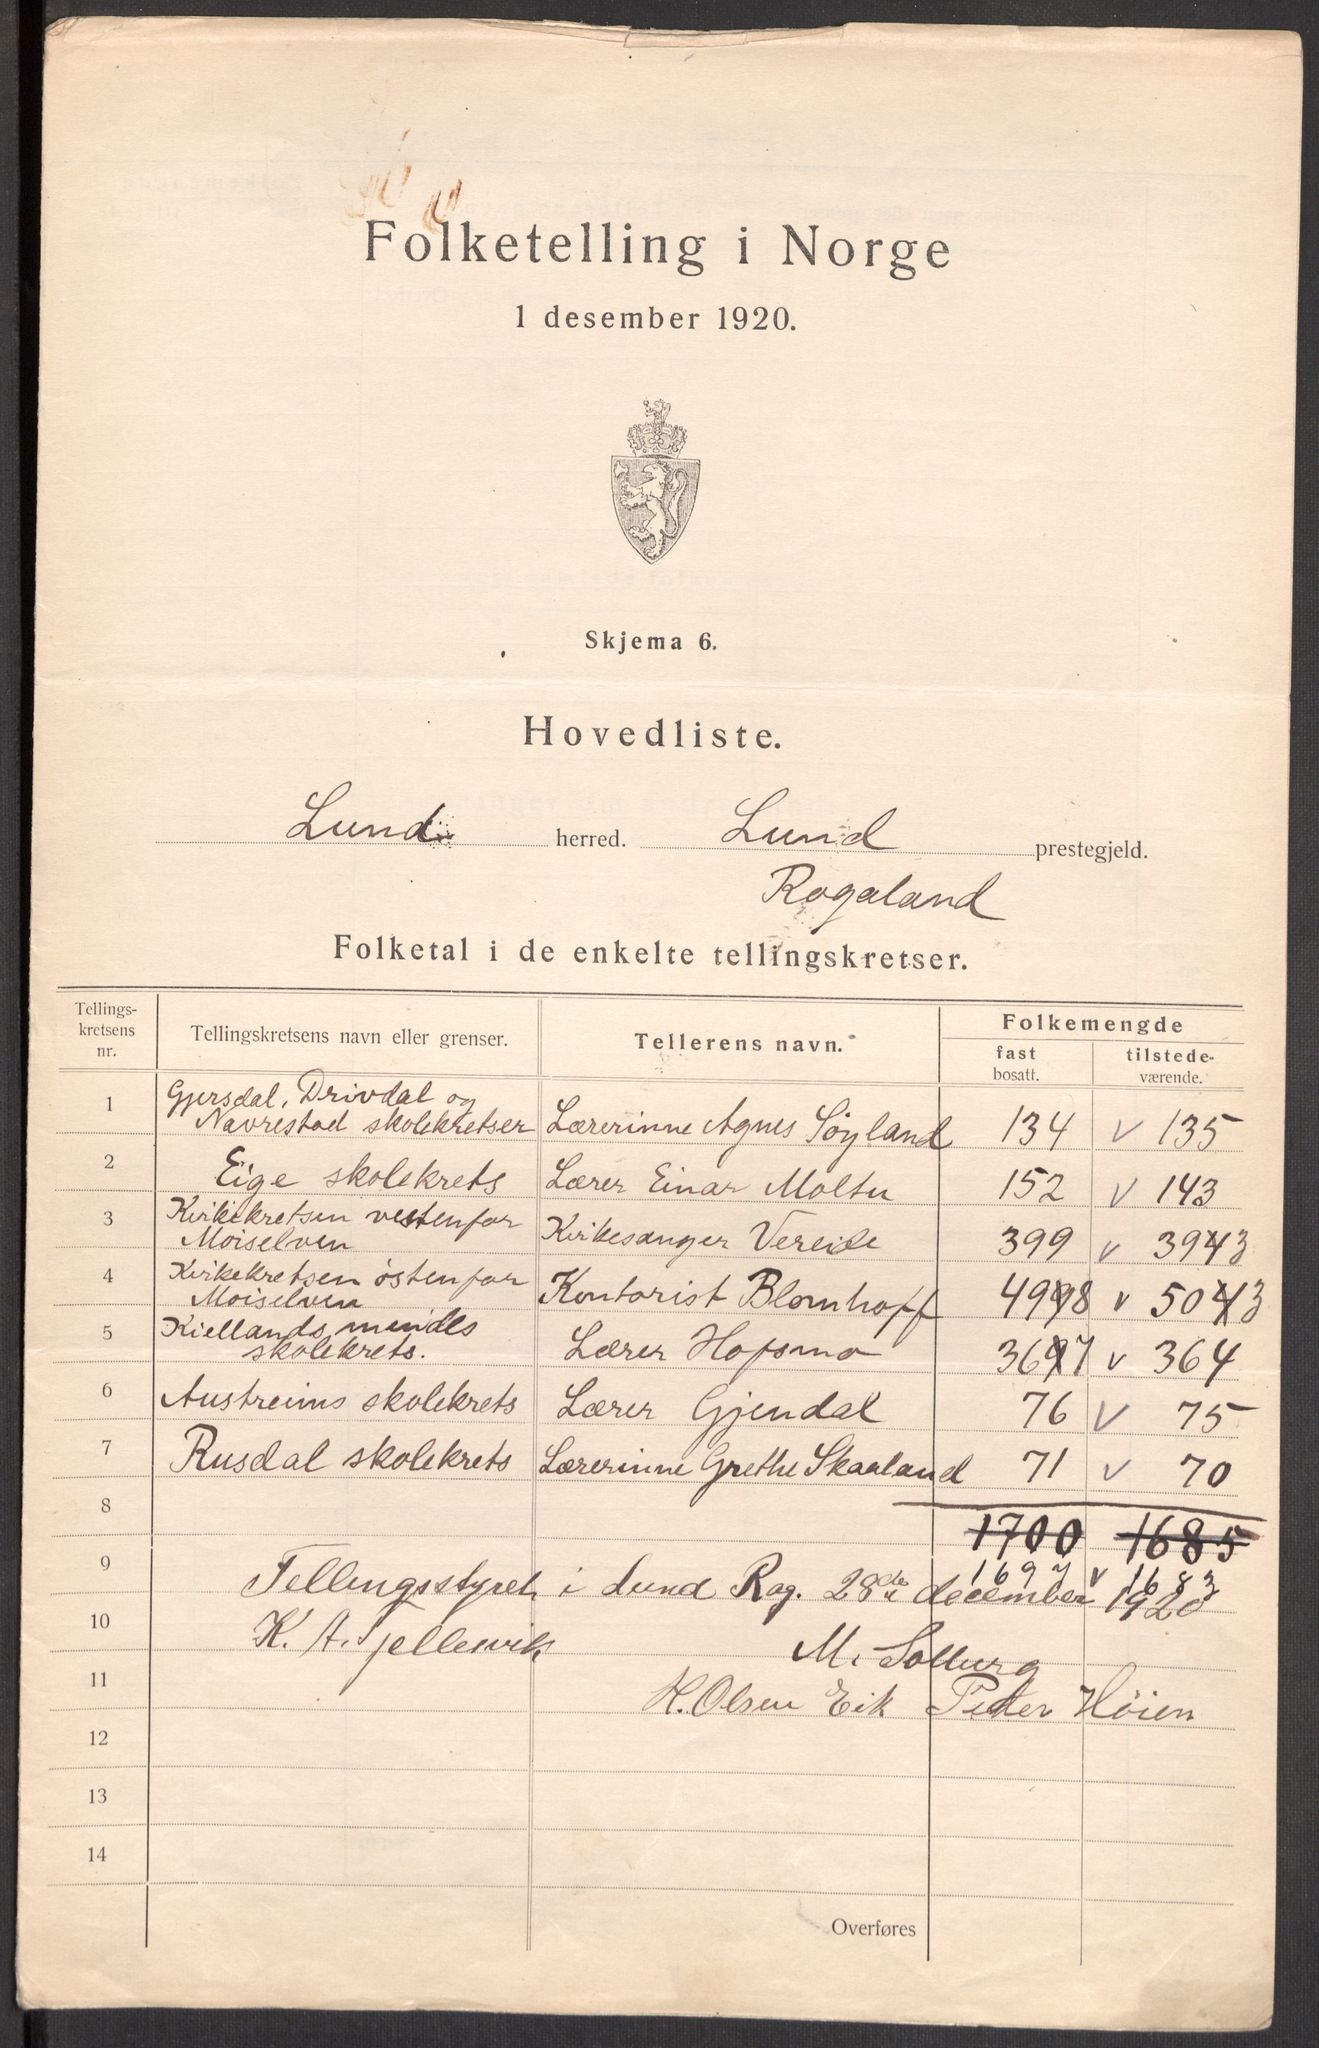 Folketelling i Norge
1 desember 1920.
Skjema 6.
Hovedliste.
Lund herred. Lund prestegjeld.
Rogaland
Folketal i de enkelte tellingskretser.
Tellings-kretsens nr. Tellingskretsens navn eller grenser. Tellerens navn. Folkemengde
fast bosatt. tilstede-værende.
1 Gjersdal, Drivdal og
Navrestad skolekretser Lærerinne Agnes Söyland 134 v 135
2 Eige skolekrets Lærer Einar Moltu 152 v 143
3 Kirkekretsen vestenfor
Moiselven Kirkesanger Vereide 399 v 3943
4 Kirkekretsen östenfor
Moiselven Kontorist Blomhoff 4998 v 5043
5 Kiellands mindes
skolekrets. Lærer Hofsmo 3697 v 364
6 Austreims skolekrets Lærer Gjendal 76 v 75
7 Rusdal skolekrets Lærerinne Grethe Skaaland 71 v 70
8 1700 1685
1697 v 1683
9 Tellingsstyret i Lund Rog. 28de december 1920
10 K. A. Tjellesvik M. Solberg
11 H. Olsen Eik Peder Höien
12
13
14
Overføres